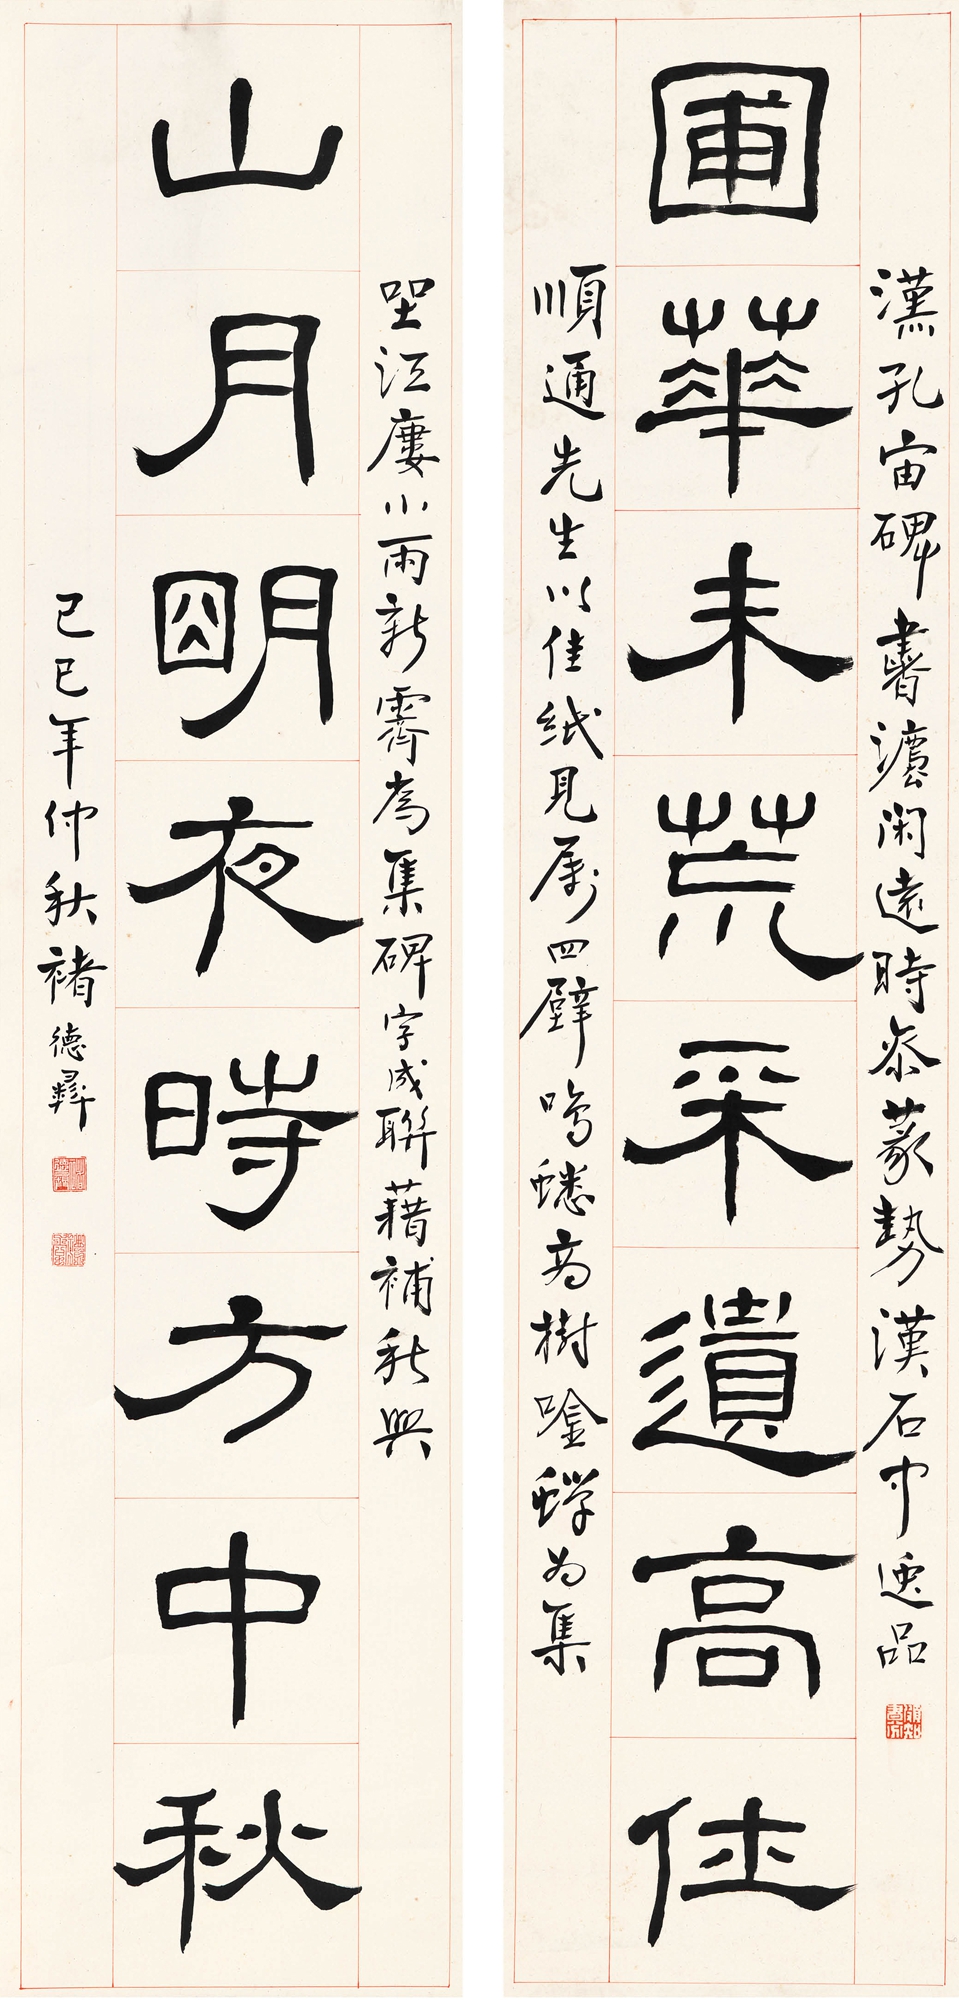 漢孔宙碑書灋閑遠時參篆勢漢石中逸品
圃華未荒采遺高佳
順通先生以佳紙見屬四壁鳴蟋高樹唫蟬為集
坐江廔小雨新霽為集碑字成聯藉補秋興
山月朙夜時方中秋
己巳年仲秋褚德彝